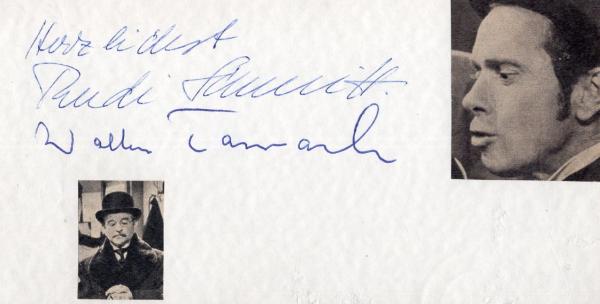 Herzlichst
Rudi Schmitt
Walter